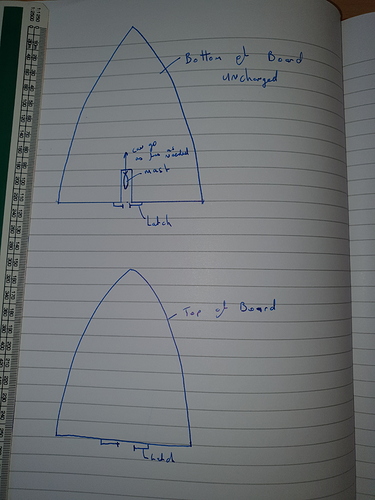 Bottom of Board
UNCHANGED
can go
as far as
needed
MAST
Latch
Top of Board
Latch